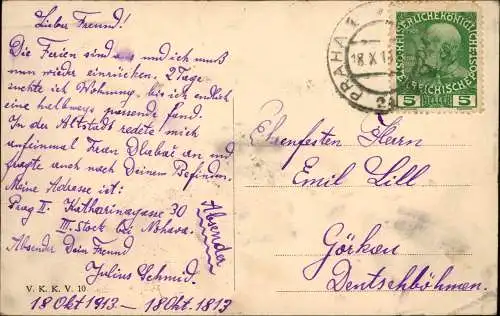 Lieber Freund!
Die Ferien sind aus und ich muß
nun wieder einrücken. 2 Tage
suchte ich Wohnung, bis ich endlich
eine halbwegs passende fand.
In der Altstadt redete mich
auf einmal Frau Dlabač an und
fragte auch nach Deinem Befinden.
Meine Adresse ist:
Prag II. Katharinagasse 30
III. Stock bei Nohava.
Absender Dein Freund
Julius Schmid.
Absender
V. K. K. V. 10
18 Okt 1913 – 18 Okt. 1813
PRAHA 1
18.X.13
5 HELLER 5
Ehrenfesten Herrn
Emil Lill
Görkau
Deutschböhmen.